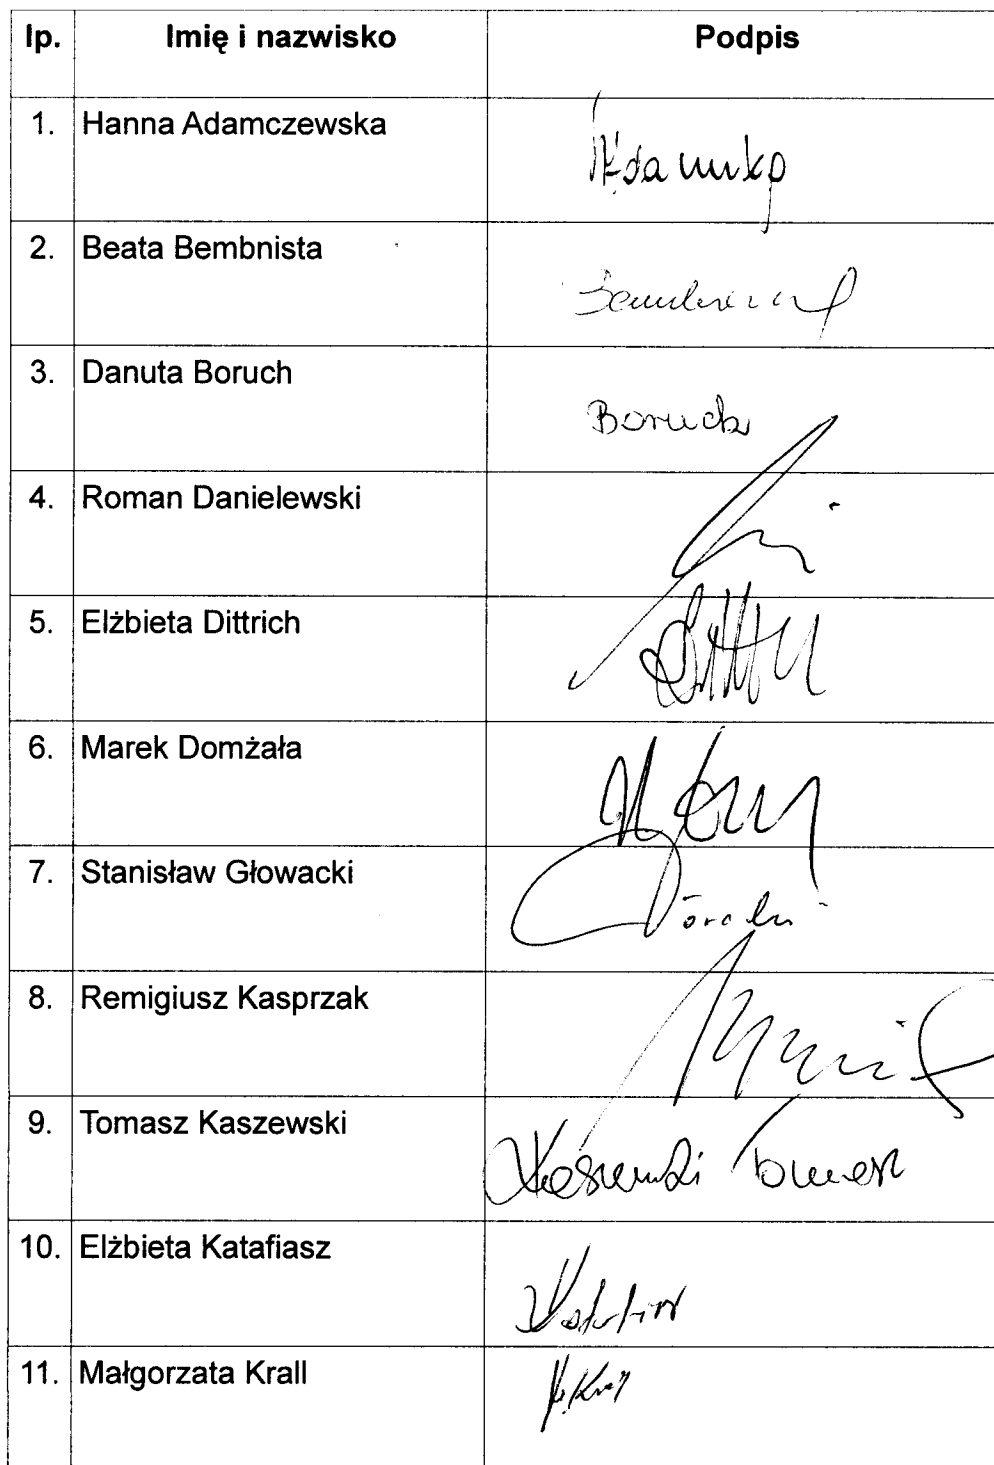 lp. Imię i nazwisko Podpis
1. Hanna Adamczewska
2. Beata Bembnista
3. Danuta Boruch Boruch
4. Roman Danielewski
5. Elżbieta Dittrich
6. Marek Domżała
7. Stanisław Głowacki
8. Remigiusz Kasprzak
9. Tomasz Kaszewski Kaszewski Tomasz
10. Elżbieta Katafiasz
11. Małgorzata Krall